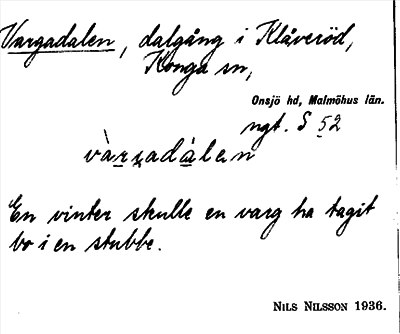 Vargadalen, dalgång i Klåveröd,
Konga sn,
Onsjö hd, Malmöhus län.
ngt. S 52
En vinter skulle en varg ha tagit
bo i en stubbe.
NILS NILSSON 1936.